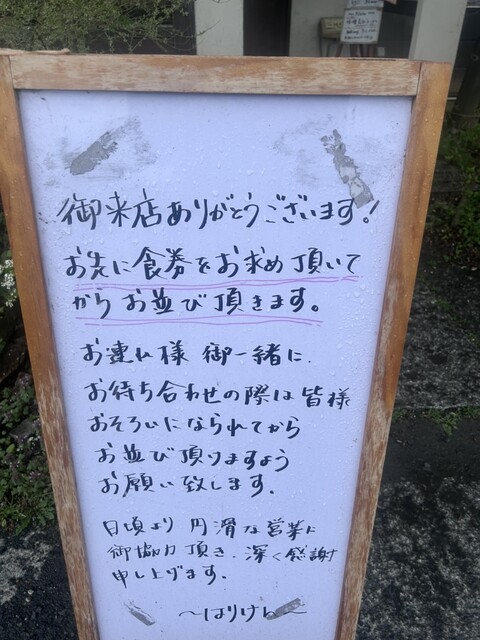 御来店ありがとうございます!
お先に食券をお求め頂いて
からお並び頂きます。
お連れ様 御一緒に
お待ち合わせの際は皆様
おそろいになられてから
お並び頂りますよう
お願い致します。
日頃より円滑な営業に
御協力頂き、深く感謝
申し上げます。
〜はりけん〜